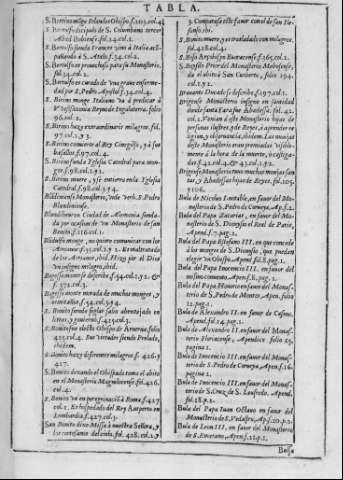 TABLA.
S. Bertino monje Irlandes Obispo. f.203.col.4.
S. Bertulfo discipulo de S. Columbano tercer
Abad Bobiense. fol.34.col.2.
S. Bertulfo siendo Frances vino à Italia acõ-
pañando à S. Atalo. f.34.col.2.
S. Bertulfo es provechoso para su Monasterio,
fol.34.col.2.
S. Bertulfo es curado de una grave enferme-
dad por S. Pedro Apostol. f.34.col.4.
S. Birino monge Italiano va à predicar à
Reynos de Inglaterra. folio
96.col.2.
S. Birino haze extraordinario milagro. fol.
97.col.2.
S. Birino convierte al Rey Cinegilso, y à sus
vasallos. f.97.col.4.
S. Birino funda Iglesia Catedral para mon-
ges. f.98.col.1.
S. Birino muere, y se entierra en la Iglesia
Catedral. f.98.col.3.
Blãdiniense Monasterio, vide verb. S. Pedro
Blandiniense.
Ciudad de Alemania funda-
da por ocasion de un Monasterio de san
Benito. f.116.col.1.
monge, no quiere comunicar con los
Arrianos. f.35.col.1. Es maltratado
de los Arrianos, ibid. Haze por el Dios
un insigne milagro, ibid.
se describe f.54.col.1.
f.372.col.3.
morada de muchos monges, y
f.54.col.3.
S. Bonito siendo seglar sale aprovechado en
letras, y govierno. f.425.col.2.
S. Bonito fue electo Obispo de Arvernia. folio
425.col.4. Sus virtudes siendo Prelado,
ibidem.
S. Bonito haze diferentes milagros. f.426.y
427.
S. Bonito dexando el Obispado toma el abito
en el Monasterio Magnilocense. fol.426.
col.4.
S. Bonito va en peregrinaciõ à Roma. f.427.
col.2. Es hospedado del Rey en
Lombardia. f.427.col.3.
San Bonito dize Missa à nuestra Señora, y
los cortesanos del cielo. fol.428.col.2.y
3. Comparase este favor con el de san Ilde-
fonso. ibi.
S. Bonito muere, y es trasladado con milagros.
fol.428.col.4.
S. Bosa Arçobispo Eboracense. f.265.col.2.
S. Prior del Monasterio Mailrosense,
da el abito à san Cutberto, folio 194.
col.1.
Bravante Ducado se describe. f.197.col.1.
Monasterio insigne en santidad
donde santa Fara fue Abadessa. fol.42.
col.2. Venian à este Monasterio hijas de
personas ilustres, y de Reyes, à aprender re-
ligion, y disciplina, ibidem. Las monjas
deste Monasterio eran premiadas visible-
mente à la hora de la muerte, ò castiga-
das. f.42.col.4. & 43.col.1.
Monasterio tuvo muchas monjas san-
tas, y Abadesas hijas de Reyes. fol.205.
y 206.
Bula de Nicolas en favor del Mona-
sterio de S. Pedro de Corveya, Ap.f.2.
Bula del Papa Zacarias, en favor del Mo-
nasterio de S. Dionysio el Real de Paris,
Apend.f.7.pag.1.
Bula del Papa Estefano III. en que concede
à los monges de S. Dionysio, que puedan
elegir un Obispo. Apend.fol.8.pag.1.
Bula del Papa Inocencio III. en favor del
mismo convento, Apen.f.8.pag.1.
Bula del Papa Honorio en favor del Mona-
sterio de S. Pedro de Monte, Apen. folio
12.pag.1.
Bula de Alexandro II. en favor de Casino,
Apend.fol.24.pag.1.
Bula de Alexandro II. en favor del Monas-
terio Floriacense, Apendice folio 25,
pagina 1.
Bula de Inocencio III. en favor del Monas-
terio de S. Pedro de Corveya, Apen.f.16.
pagina 2.
Bula de Inocencio III. en favor del Monas-
terio de S. Cruz de S. Leufredo. Apend.
fol.18.p.2.
Bula del Papa Iuan Octavo en favor del
Monasterio de S. Vedasto, Ap.f.20.p.2.
Bula de Leon III. en favor del Monasterio
de S. Emerano, Apen.f.22.p.1.
Bosa